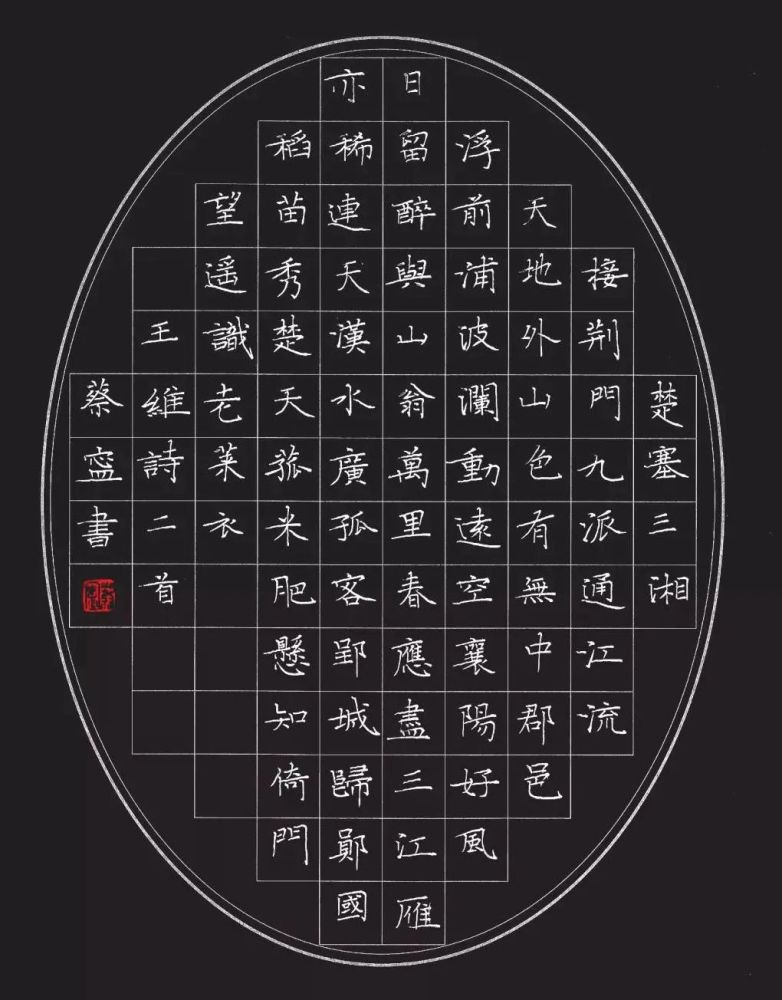 楚塞三湘
接荆門九派通江流
天地外山色有無中郡邑
浮前浦波瀾動遠空襄陽好風
日留醉與山翁萬里春應盡三江雁
亦稀連天漢水廣孤客郢城歸鄖國
稻苗秀楚天菰米肥懸知倚門
望遥識老萊衣
王維詩二首
蔡寍書